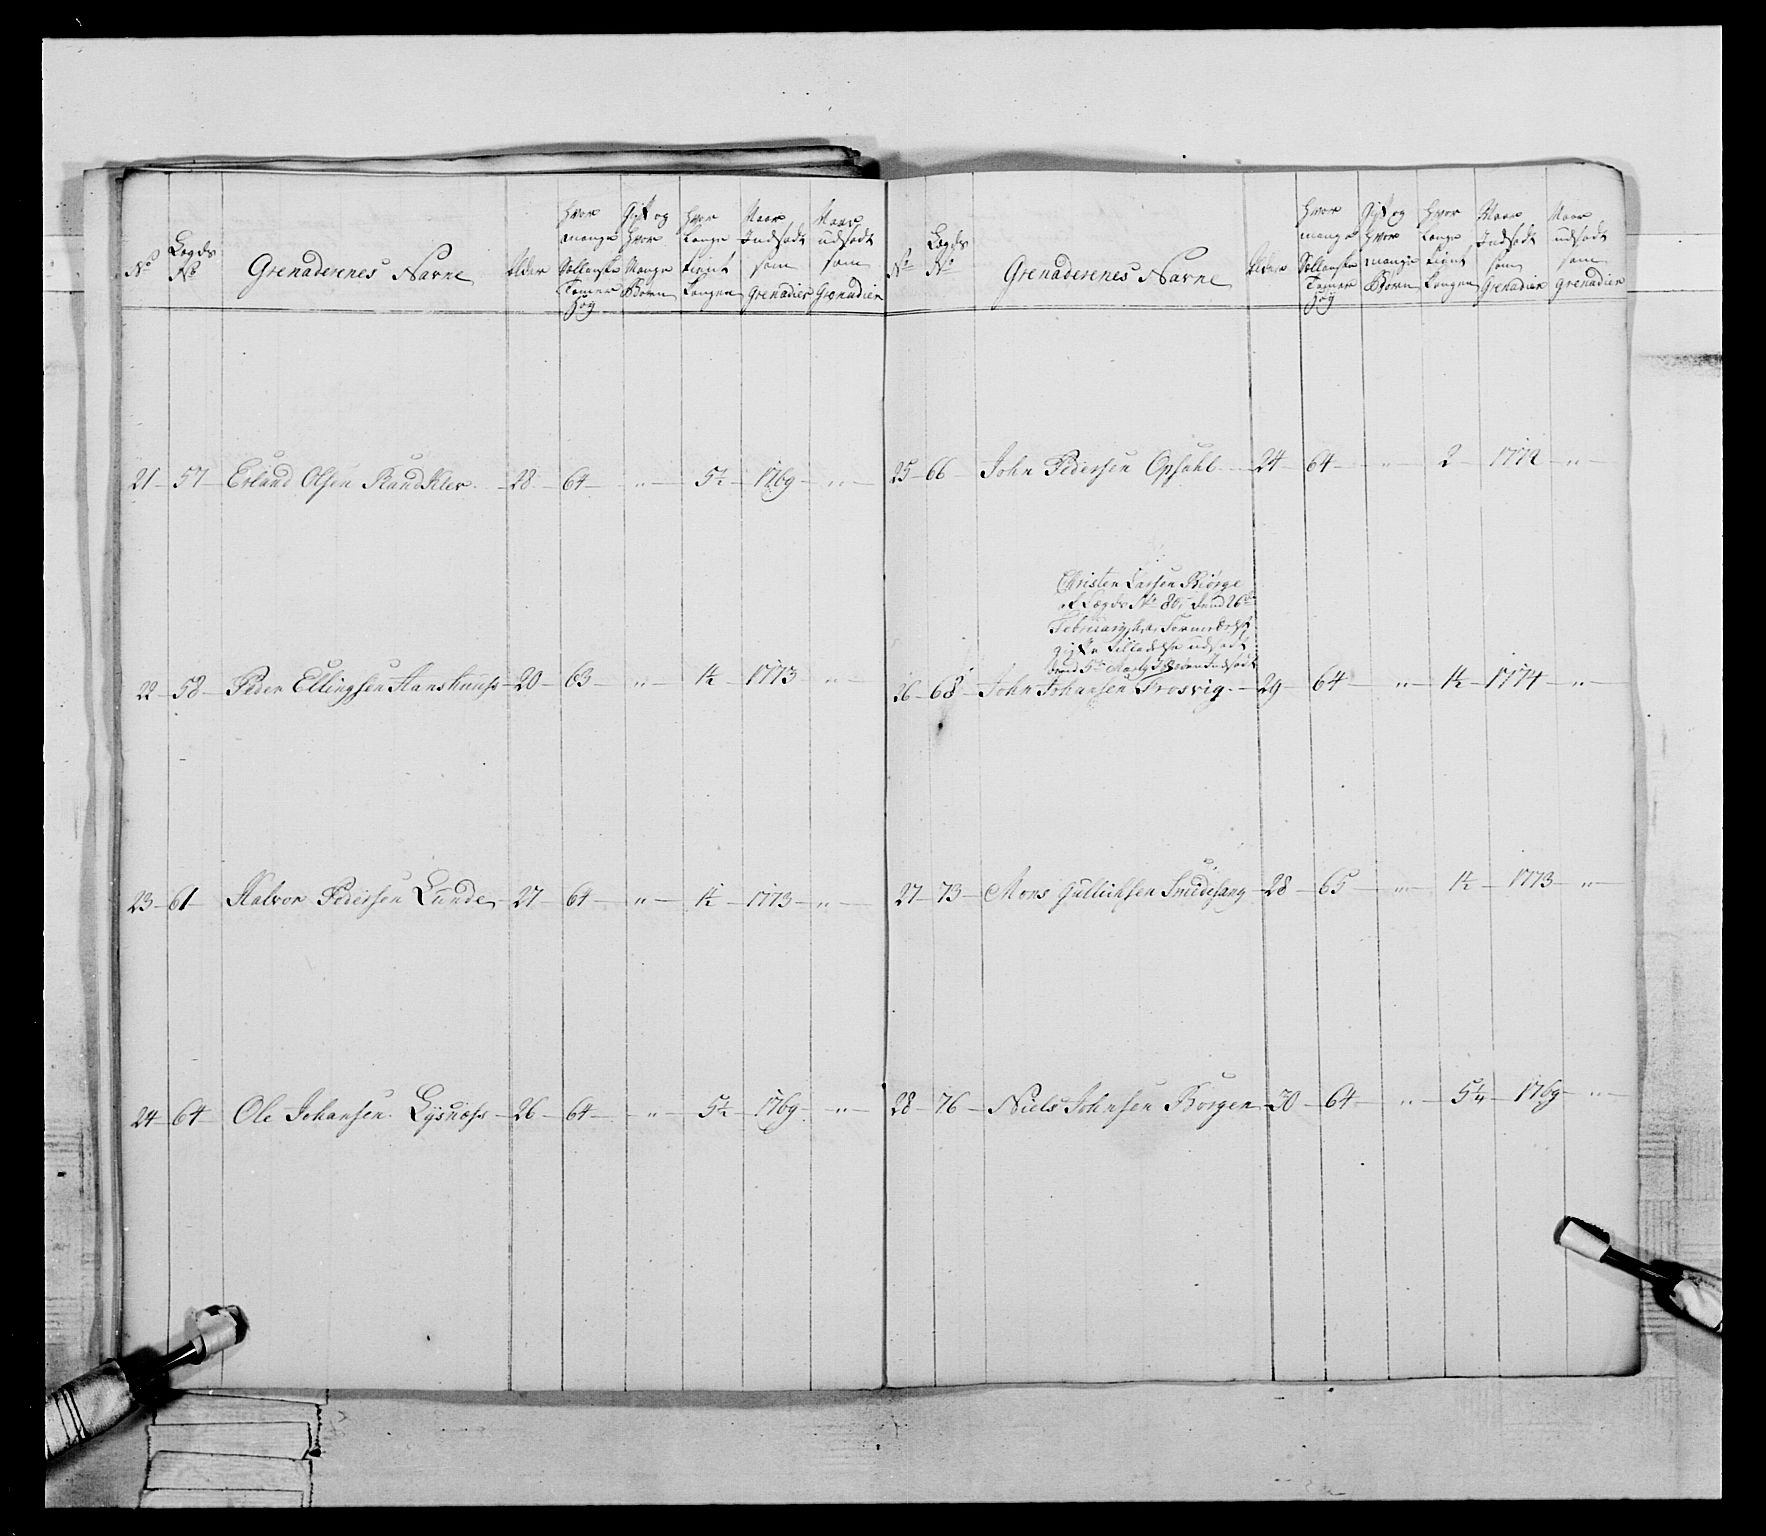 No
Lægds No
Grenaderenes Navne
Alder
Hvor mange Sollanske Tomer Høy
Gift og Hvor Mange Børn
Hvor Længe tient Kongen
Naar Indsadt som Grenadier
Naar udsadt som Grenadier
21 57 Erland Olsen Rand Klev 28 64 " 5½ 1769 "
22 58 Peder Ellingsen 20 63 " 1½ 1773 "
23 61 Halvor Pedersen Lunde 27 64 " 1½ 1773 "
24 64 Ole Johansen Lysnæss 26 64 " 5½ 1769 "
No
Lægds No
Grenaderenes Navne
Alder
Hvor mange Sollanske Tomer Høy
Gift og Hvor mange Børn
Hvor længe tient Kongen
Naar Indsadt som Grenadier
Naar udsadt som Grenadier
25 66 John Pedersen Opsahl 24 64 " 2 1772 "
Christen Larsen Biørge
af Lægds No 80, den 26de
February
udsadt
Indsadt
26 68 John Johansen Frosvig 29 64 " 1½ 1774 "
27 73 Mons Gullichsen 28 65 " 1½ 1773 "
28 76 Niels Johnsen Borgen 30 64 " 5¼ 1769 "